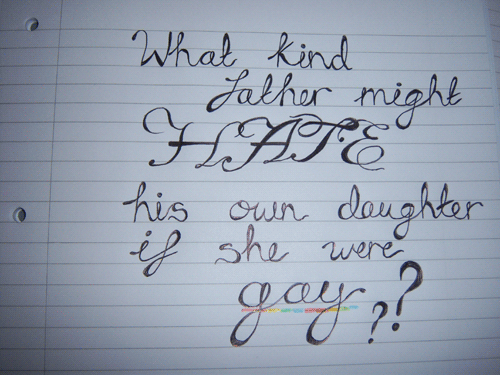 What kind
father might
HATE
his own daughter
if she were
gay??